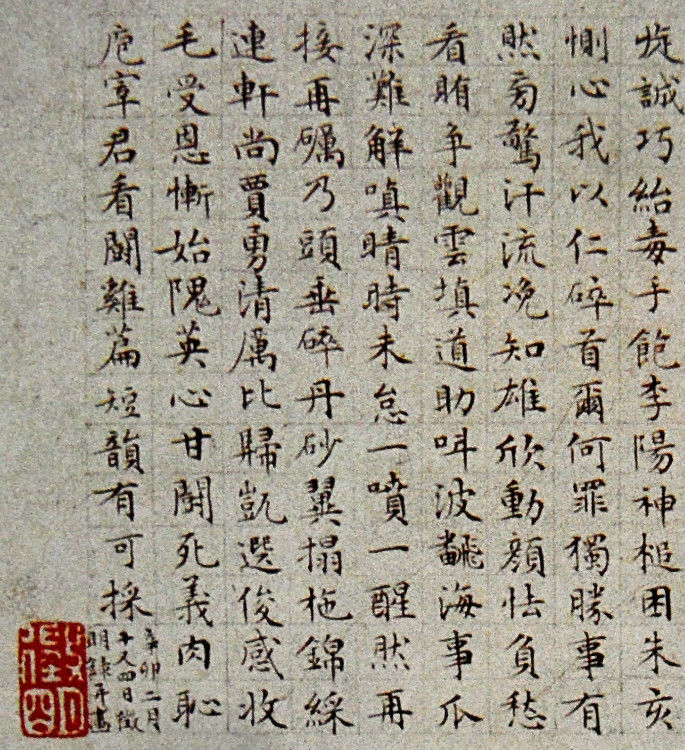 旋誠巧紿毒手飽李陽神槌困朱亥
惻心我以仁碎首爾何罪獨勝事有
然旁驚汗流浼知雄欣動顔怯負愁
看賄争觀雲填道助叫波飜海事爪
深難解嗔睛時未怠一噴一醒然再
接再礪乃頭垂碎丹砂翼搨拖錦綵
連軒尚賈勇清厲比歸凱選俊感收
毛受恩慚始隗英心甘鬪死義肉恥
庖宰君看鬪雞篇短韻有可採
辛卯二月
十又四日徵
明